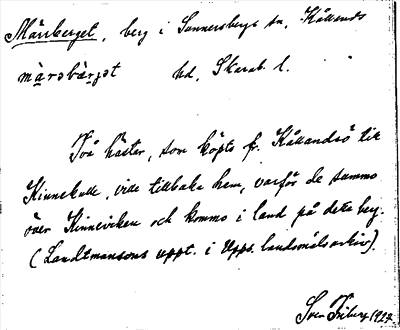 Märrberget, berg i Sunnersbergs sn, Kållands
mærsbærjet hd, Skarab. l.
Två hästar, som köpts fr. Kållandsö till
Kinnekulle, ville tillbaka hem, varför de summo
över Kinneviken och kommo i land på detta berg.
(Landtmansons uppt. i Upps. landsmålsarkiv).
Sven Friberg 1927.